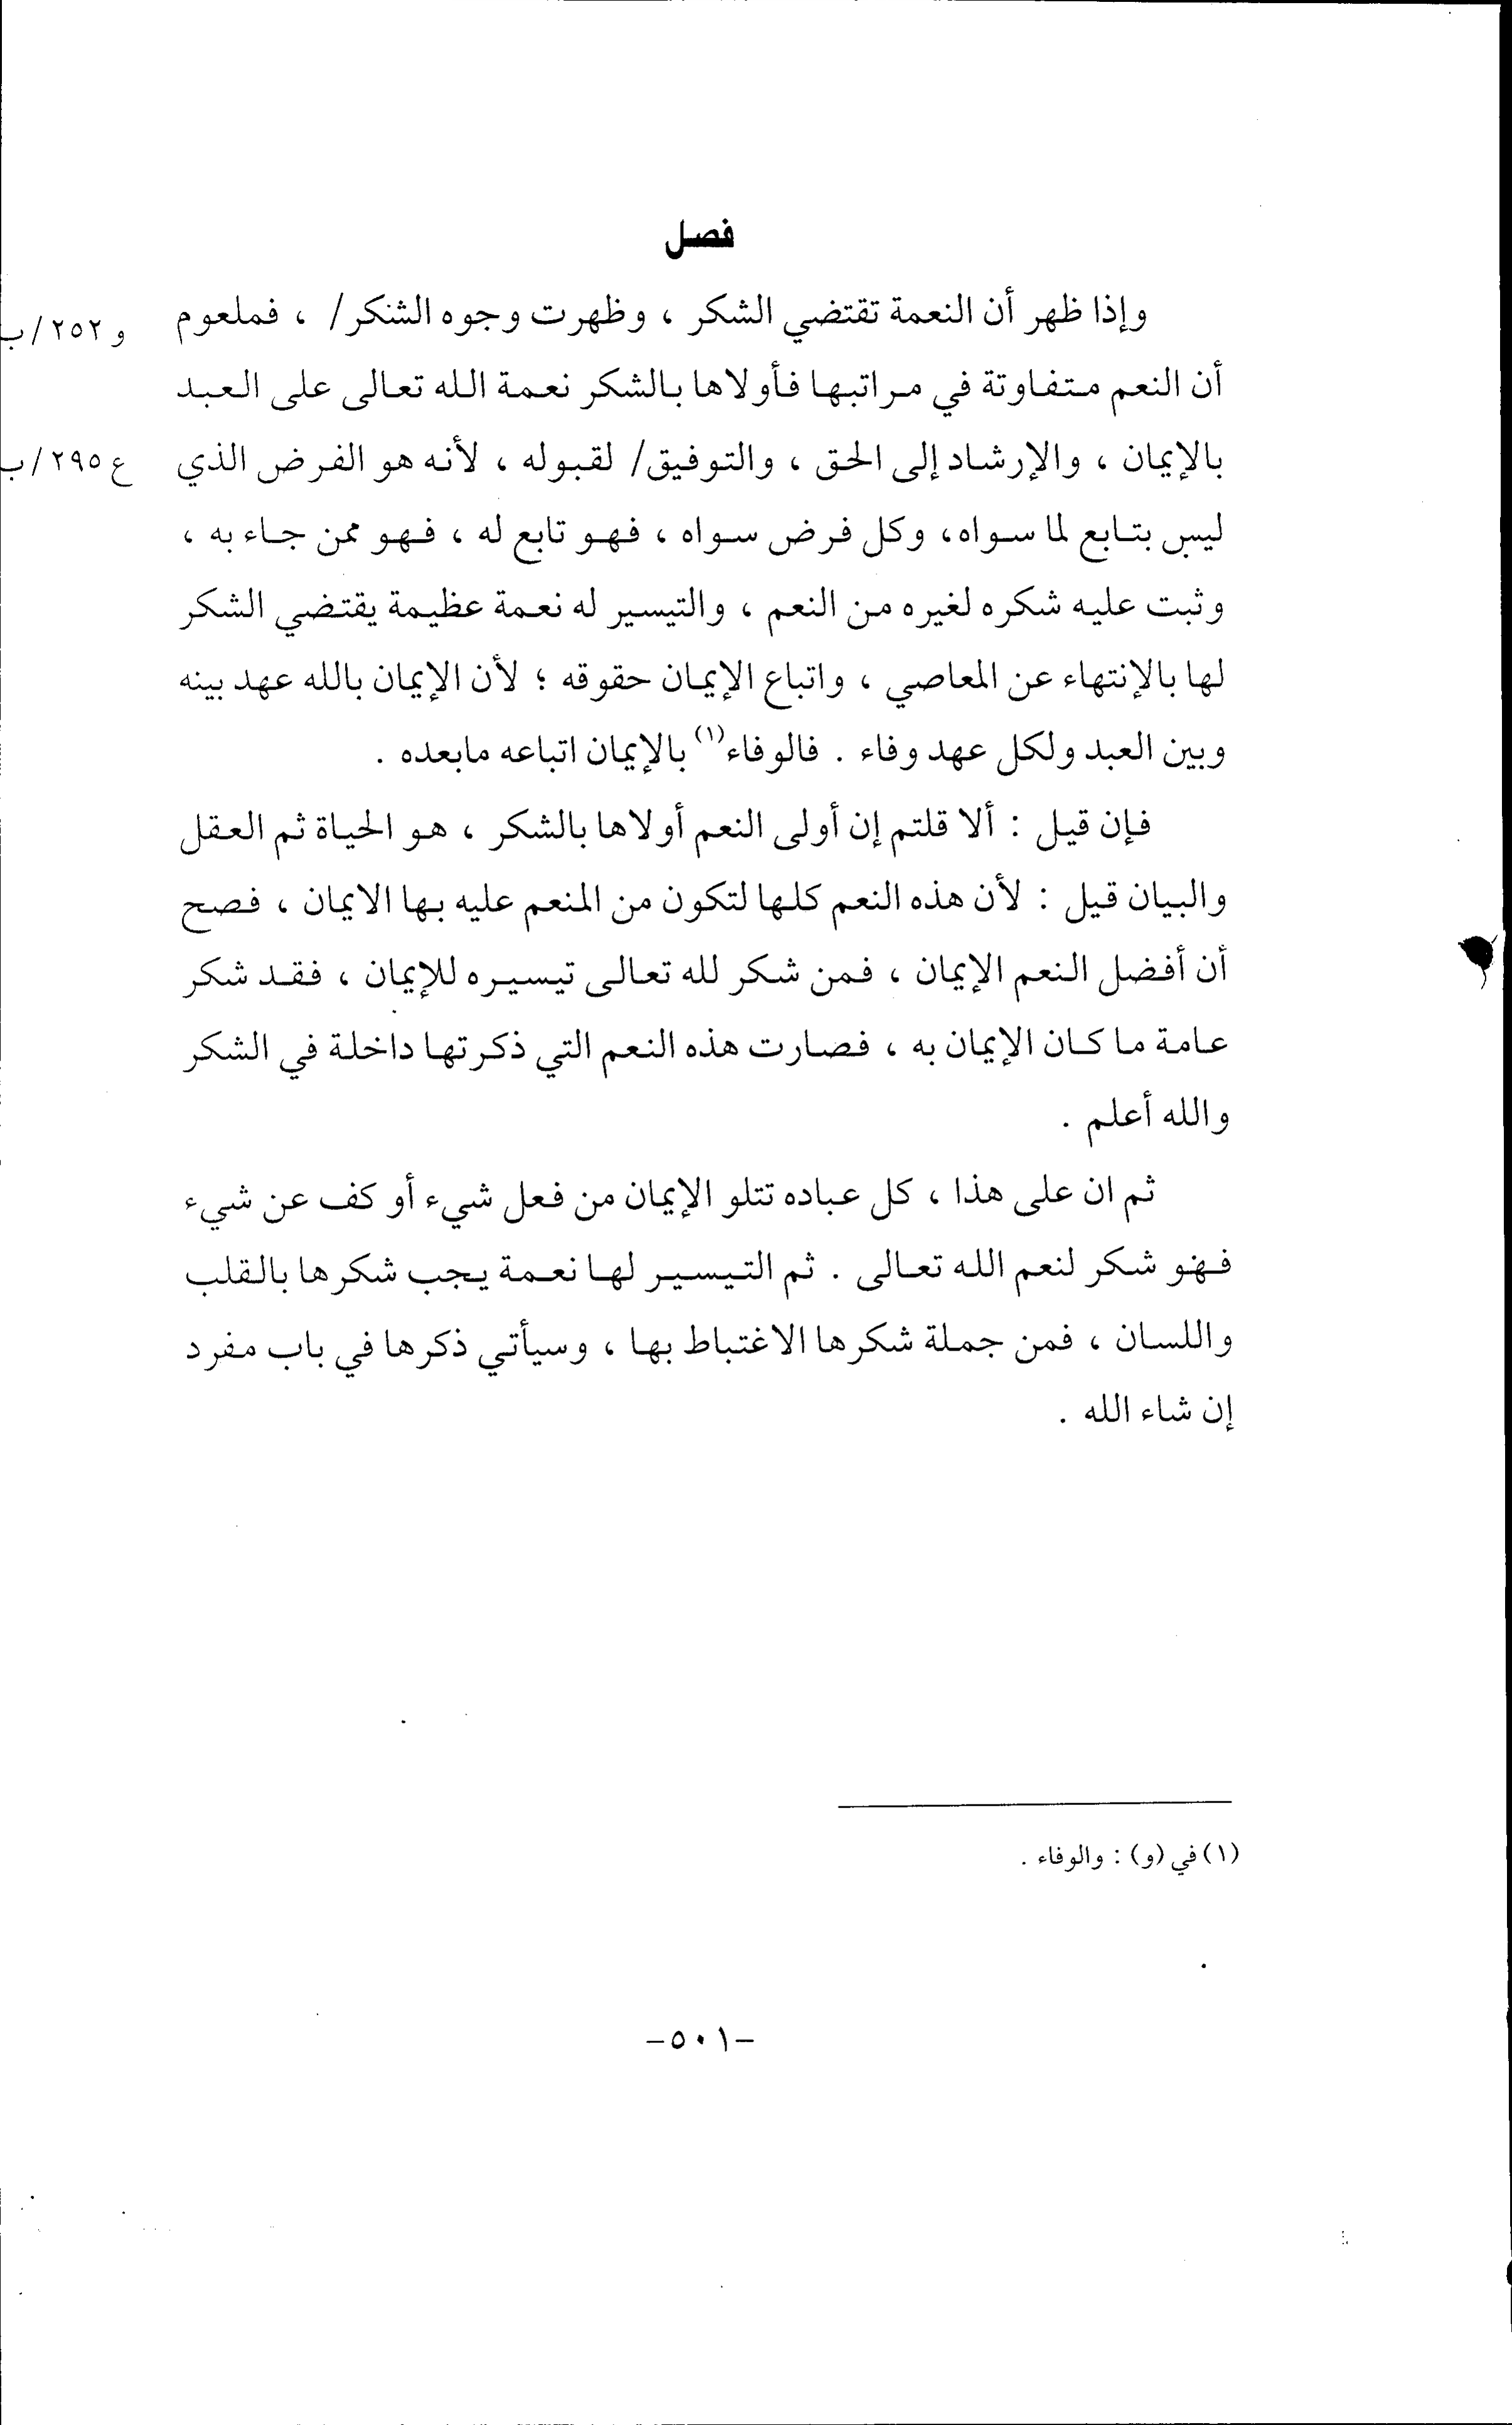 فصل
وإذا ظهر أن النعمة تقتضي الشكر ، وظهرت وجوه الشكر/ ، فملعوم و٢٥٢/ب
أن النعم متفاوتة في مراتبها فأولاها بالشكر نعمة الله تعالى على العبد
بالإيمان ، والإرشاد إلى الحق ، والتوفيق/ لقبوله ، لأنه هو الفرض الذي ع٢٩٥/ب
ليس بتابع لما سواه، وكل فرض سواه ، فهو تابع له ، فهو ممن جاء به ،
وثبت عليه شكره لغيره من النعم ، والتيسير له نعمة عظيمة يقتضي الشكر
لها بالإنتهاء عن المعاصي ، واتباع الإيمان حقوقه ؛ لأن الإيمان بالله عهد بينه
وبين العبد ولكل عهد وفاء . فالوفاء(١) بالإيمان اتباعه مابعده .
فإن قيل : ألا قلتم إن أولى النعم أولاها بالشكر ، هو الحياة ثم العقل
والبيان قيل : لأن هذه النعم كلها لتكون من المنعم عليه بها الايمان ، فصح
أن أفضل النعم الإيمان ، فمن شكر لله تعالى تيسيره للإيمان ، فقد شكر
عامة ما كان الإيمان به ، فصارت هذه النعم التي ذكرتها داخلة في الشكر
والله أعلم .
ثم ان على هذا ، كل عباده تتلو الإيمان من فعل شيء أو كف عن شيء
فهو شكر لنعم الله تعالى . ثم التيسير لها نعمة يجب شكرها بالقلب
واللسان ، فمن جملة شكرها الاغتباط بها ، وسيأتي ذكرها في باب مفرد
إن شاء الله .
(١) في (و) : والوفاء .
-٥٠١-